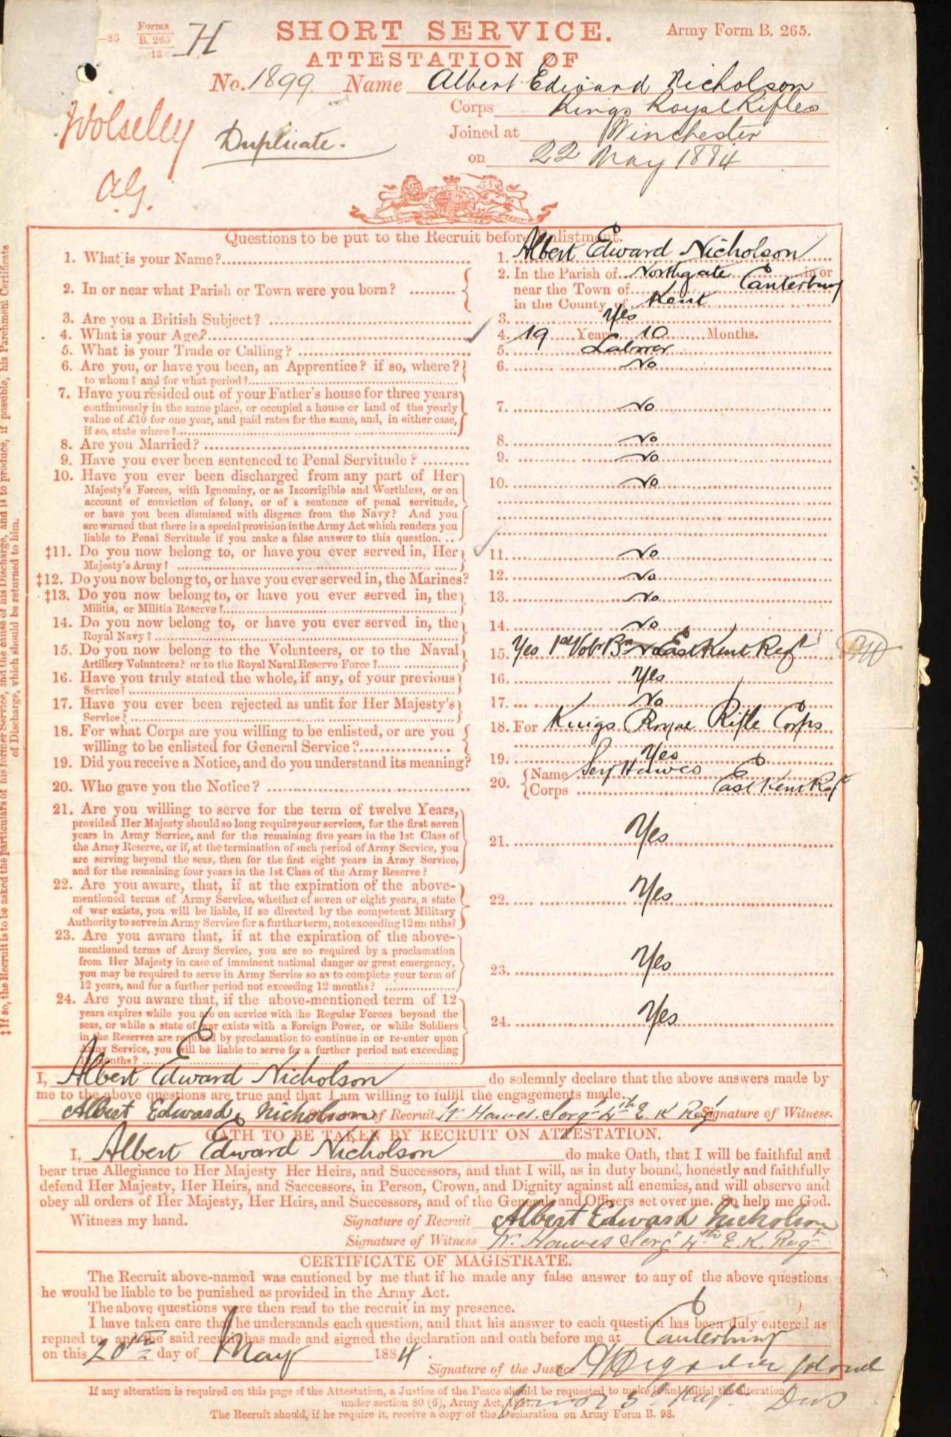 Forms
B. 265
SHORT SERVICE.
Army Form B. 265.
H
ATTESTATION OF
No. 1899 Name Albert Edward Nicholson
Corps Kings Royal Rifles
Wolseley
Duplicate.
Joined at Winchester
on 22 May 1884
A.G.
Questions to be put to the Recruit before Enlistment.
1. What is your Name?
1. Albert Edward Nicholson
2. In or near what Parish or Town were you born?
2. In the Parish of Northgate in or
near the Town of Canterbury
in the County of Kent
3. Are you a British Subject?
3. Yes
4. What is your Age?
4. 19 Years 10 Months.
5. What is your Trade or Calling?
5. Laborer
6. Are you, or have you been, an Apprentice? if so, where?
to whom? and for what period?
6. No
7. Have you resided out of your Father's house for three years
continuously in the same place, or occupied a house or land of the yearly
value of £10 for one year, and paid rates for the same, and, in either case,
if so, state where?
7. No
8. Are you Married?
8. No
9. Have you ever been sentenced to Penal Servitude?
9. No
10. Have you ever been discharged from any part of Her
Majesty's Forces, with Ignominy, or as Incorrigible and Worthless, or on
account of conviction of felony, or of a sentence of penal servitude,
or have you been dismissed with disgrace from the Navy? And you
are warned that there is a special provision in the Army Act which renders you
liable to Penal Servitude if you make a false answer to this question.
10. No
‡11. Do you now belong to, or have you ever served in, Her
Majesty's Army?
11. No
‡12. Do you now belong to, or have you ever served in, the Marines?
12. No
‡13. Do you now belong to, or have you ever served in, the
Militia, or Militia Reserve?
13. No
14. Do you now belong to, or have you ever served in, the
Royal Navy?
14. No
15. Do you now belong to the Volunteers, or to the Naval
Artillery Volunteers? or to the Royal Naval Reserve Force?
15. Yes 1st Vol. Bn East Kent Regt
16. Have you truly stated the whole, if any, of your previous
Service?
16. Yes
17. Have you ever been rejected as unfit for Her Majesty's
Service?
17. No
18. For what Corps are you willing to be enlisted, or are you
willing to be enlisted for General Service?
18. For Kings Royal Rifle Corps
19. Did you receive a Notice, and do you understand its meaning?
19. Yes
20. Who gave you the Notice?
20. Name Sergt Hawes
Corps East Kent Regt
21. Are you willing to serve for the term of twelve Years,
provided Her Majesty should so long require your services, for the first seven
years in Army Service, and for the remaining five years in the 1st Class of
the Army Reserve, or if, at the termination of such period of Army Service, you
are serving beyond the seas, then for the first eight years in Army Service,
and for the remaining four years in the 1st Class of the Army Reserve?
21. Yes
22. Are you aware, that, if at the expiration of the above-
mentioned terms of Army Service, whether of seven or eight years, a state
of war exists, you will be liable, if so directed by the competent Military
Authority to serve in Army Service for a further term, not exceeding 12 months?
22. Yes
23. Are you aware that, if at the expiration of the above-
mentioned terms of Army Service, you are so required by a proclamation
from Her Majesty in case of imminent national danger or great emergency,
you may be required to serve in Army Service so as to complete your term of
12 years, and for a further period not exceeding 12 months?
23. Yes
24. Are you aware that, if the above-mentioned term of 12
years expires while you are on service with the Regular Forces beyond the
seas, or while a state of war exists with a Foreign Power, or while Soldiers
in the Reserves are required by proclamation to continue in or re-enter upon
Army Service, you will be liable to serve for a further period not exceeding
12 months?
24. Yes
I, Albert Edward Nicholson do solemnly declare that the above answers made by
me to the above questions are true and that I am willing to fulfil the engagements made.
Albert Edward Nicholson of Recruit. W. Hawes Sergt 4th E. K. Regt Signature of Witness.
OATH TO BE TAKEN BY RECRUIT ON ATTESTATION.
I, Albert Edward Nicholson do make Oath, that I will be faithful and
bear true Allegiance to Her Majesty Her Heirs, and Successors, and that I will, as in duty bound, honestly and faithfully
defend Her Majesty, Her Heirs, and Successors, in Person, Crown, and Dignity against all enemies, and will observe and
obey all orders of Her Majesty, Her Heirs, and Successors, and of the Generals and Officers set over me. So help me God.
Witness my hand. Signature of Recruit Albert Edward Nicholson
Signature of Witness W. Hawes Sergt 4th E. K. Regt
CERTIFICATE OF MAGISTRATE.
The Recruit above-named was cautioned by me that if he made any false answer to any of the above questions
he would be liable to be punished as provided in the Army Act.
The above questions were then read to the recruit in my presence.
I have taken care that he understands each question, and that his answer to each question has been duly entered as
replied to, and the said recruit has made and signed the declaration and oath before me at Canterbury
on this 20th day of May 1884.
Signature of the Justice Colonel
If any alteration is required on this page of the Attestation, a Justice of the Peace should be requested to make it and initial the alteration
under section 80 (6), Army Act,
The Recruit should, if he require it, receive a copy of the Declaration on Army Form B. 93.
‡ If so, the Recruit is to be asked the particulars of his former Service, and the cause of his Discharge, and is to produce, if possible, his Parchment Certificate
of Discharge, which should be returned to him.